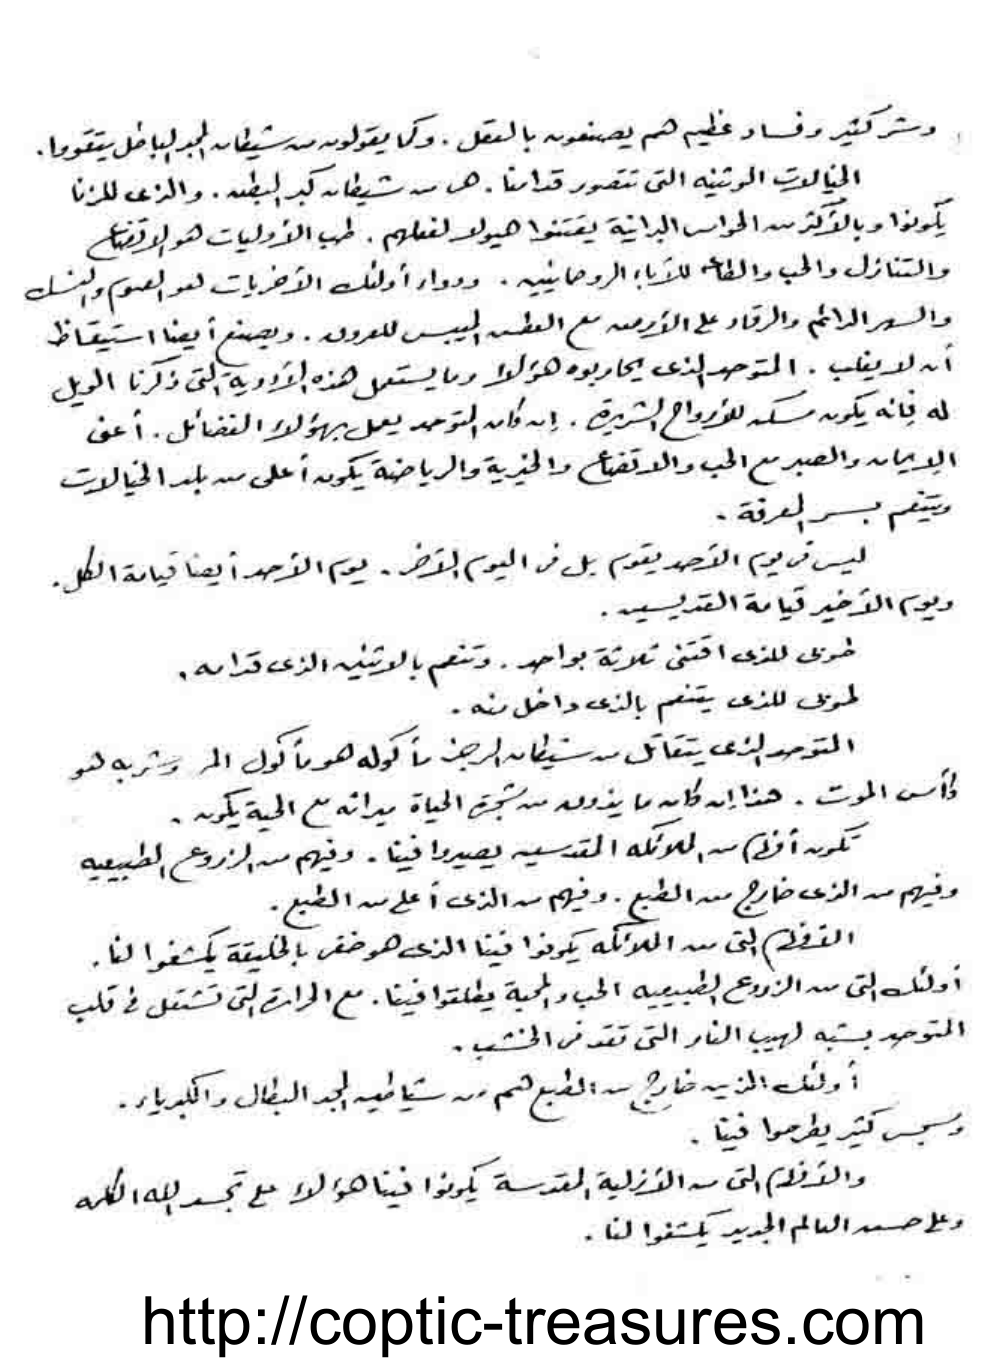 وشر كثير وفساد عظيم هم يصنعون بالعقل . وكما يقولون من شيطان المجد الباطل يتقوما .
الخيالات الوثنيه التى تتصور قدامنا . هى من شيطان كبر البطن . والذى للزنا
يكونوا وبالأكثر من الحواس البرانية يقتنوا هيولا لفعلهم . طب الأوليات هو الاتضاع
والتنازل والحب والطاعه للآباء الروحانيين . ودواء أولئك الأخريات هو الصوم والنسك
والسهر الدائم والرقاد على الأرض مع العطش الميبس للعروق . ويصنع أيضا استيقاظ
أن لا يغلب . المتوحد الذى يحاربوه هؤلاء وما يستعمل هذه الأدوية التى ذكرنا الويل
له فإنه يكون مسكن للأرواح الشريرة . إن كان المتوحد يعمل بهؤلاء الفضائل . أعنى
الإيمان والصبر مع الحب والاتضاع والخيرية والرياضة يكون أعلى من بلد الخيالات
ويتنعم بسر المعرفة .
ليس فى يوم الأحد يقوم بل فى اليوم الآخر . يوم الأحد أيضا قيامة الكل .
ويوم الأخير قيامة القديسين .
طوبى للذى اقتنى ثلاثة بواحد . وتنعم بالاثنين الذى قدامه .
طوبى للذى يتنعم بالذى داخل منه .
المتوحد الذى يتقاتل من شيطان الرجز مأكوله هو مأكول المر وشربه هو
كأس الموت . هذا إن كان ما يذوق من شجرة الحياة ميراثه مع الحية يكون .
تكون أفكار من الملائكه المقدسين يصيروا فينا . وفيهم من الزروع الطبيعيه
وفيهم من الذى خارج من الطبع . وفيهم من الذى أعلى من الطبع .
الأفكار التى من الملائكه يكونوا فينا الذى هو خفى بالخليقة يكشفوا لنا .
أولئك التى من الزروع الطبيعيه الحب والمحبة يطلقوا فينا . مع الحرارة التى تشتعل فى قلب
المتوحد بشبه لهيب النار التى تقد فى الخشب .
أولئك الذين خارج من الطبع هم من شياطين المجد البطال والكبرياء .
وسجس كثير يطرحوا فينا .
والأفكار التى من الأزلية المقدسة يكونوا فينا هؤلاء على تجسد الله الكلمه
وعلى حسن العالم الجديد يكشفوا لنا .
http://coptic-treasures.com